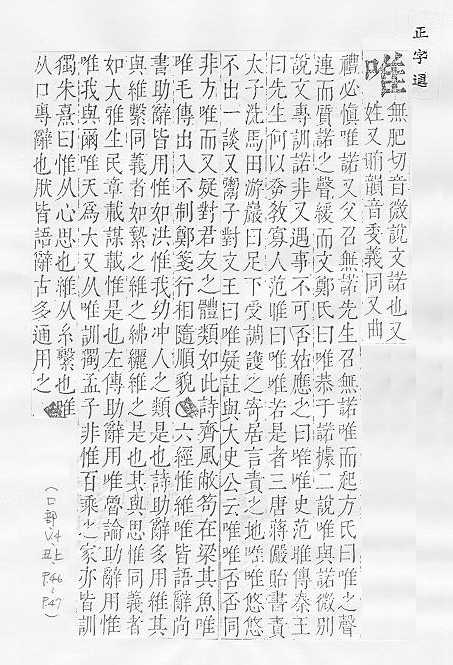 正字通
唯
無肥切音微說文諾也又
姓又賄韻音委義同又曲
禮必慎唯諾又父召無諾先生召無諾唯而起方氏曰唯之聲
連而質諾之聲緩而文鄭氏曰唯恭于諾據二說唯與諾微別
說文專訓諾非又遇事不可否姑應之曰唯唯史范雎傳秦王
曰先生何以幸教寡人范雎曰唯唯若是者三唐蔣儼貽書責
太子洗馬田游巖曰足下受調護之寄居言責之地唯唯悠悠
不出一談又鬻子對文王曰唯疑註與大史公云唯唯否否同
非方唯而又疑對君友之體類如此詩齊風敝笱在梁其魚唯
唯毛傳出入不制鄭箋行相隨順貌六經惟維唯皆語辭尚
書助辭皆用惟如洪惟我幼冲人之類是也詩助辭多用維其
與維繫同義者如縶之維之紼纚維之是也其與思惟同義者
如大雅生民章載謀載惟是也左傳助辭用唯魯論助辭用惟
唯我與爾唯天爲大又从唯訓獨孟子非惟百乘之家亦皆訓
獨朱熹曰惟从心思也維从糸繫也唯
从口專辭也肰皆語辭古多通用之
(口部、V.4 丑上、P.46~P.47)